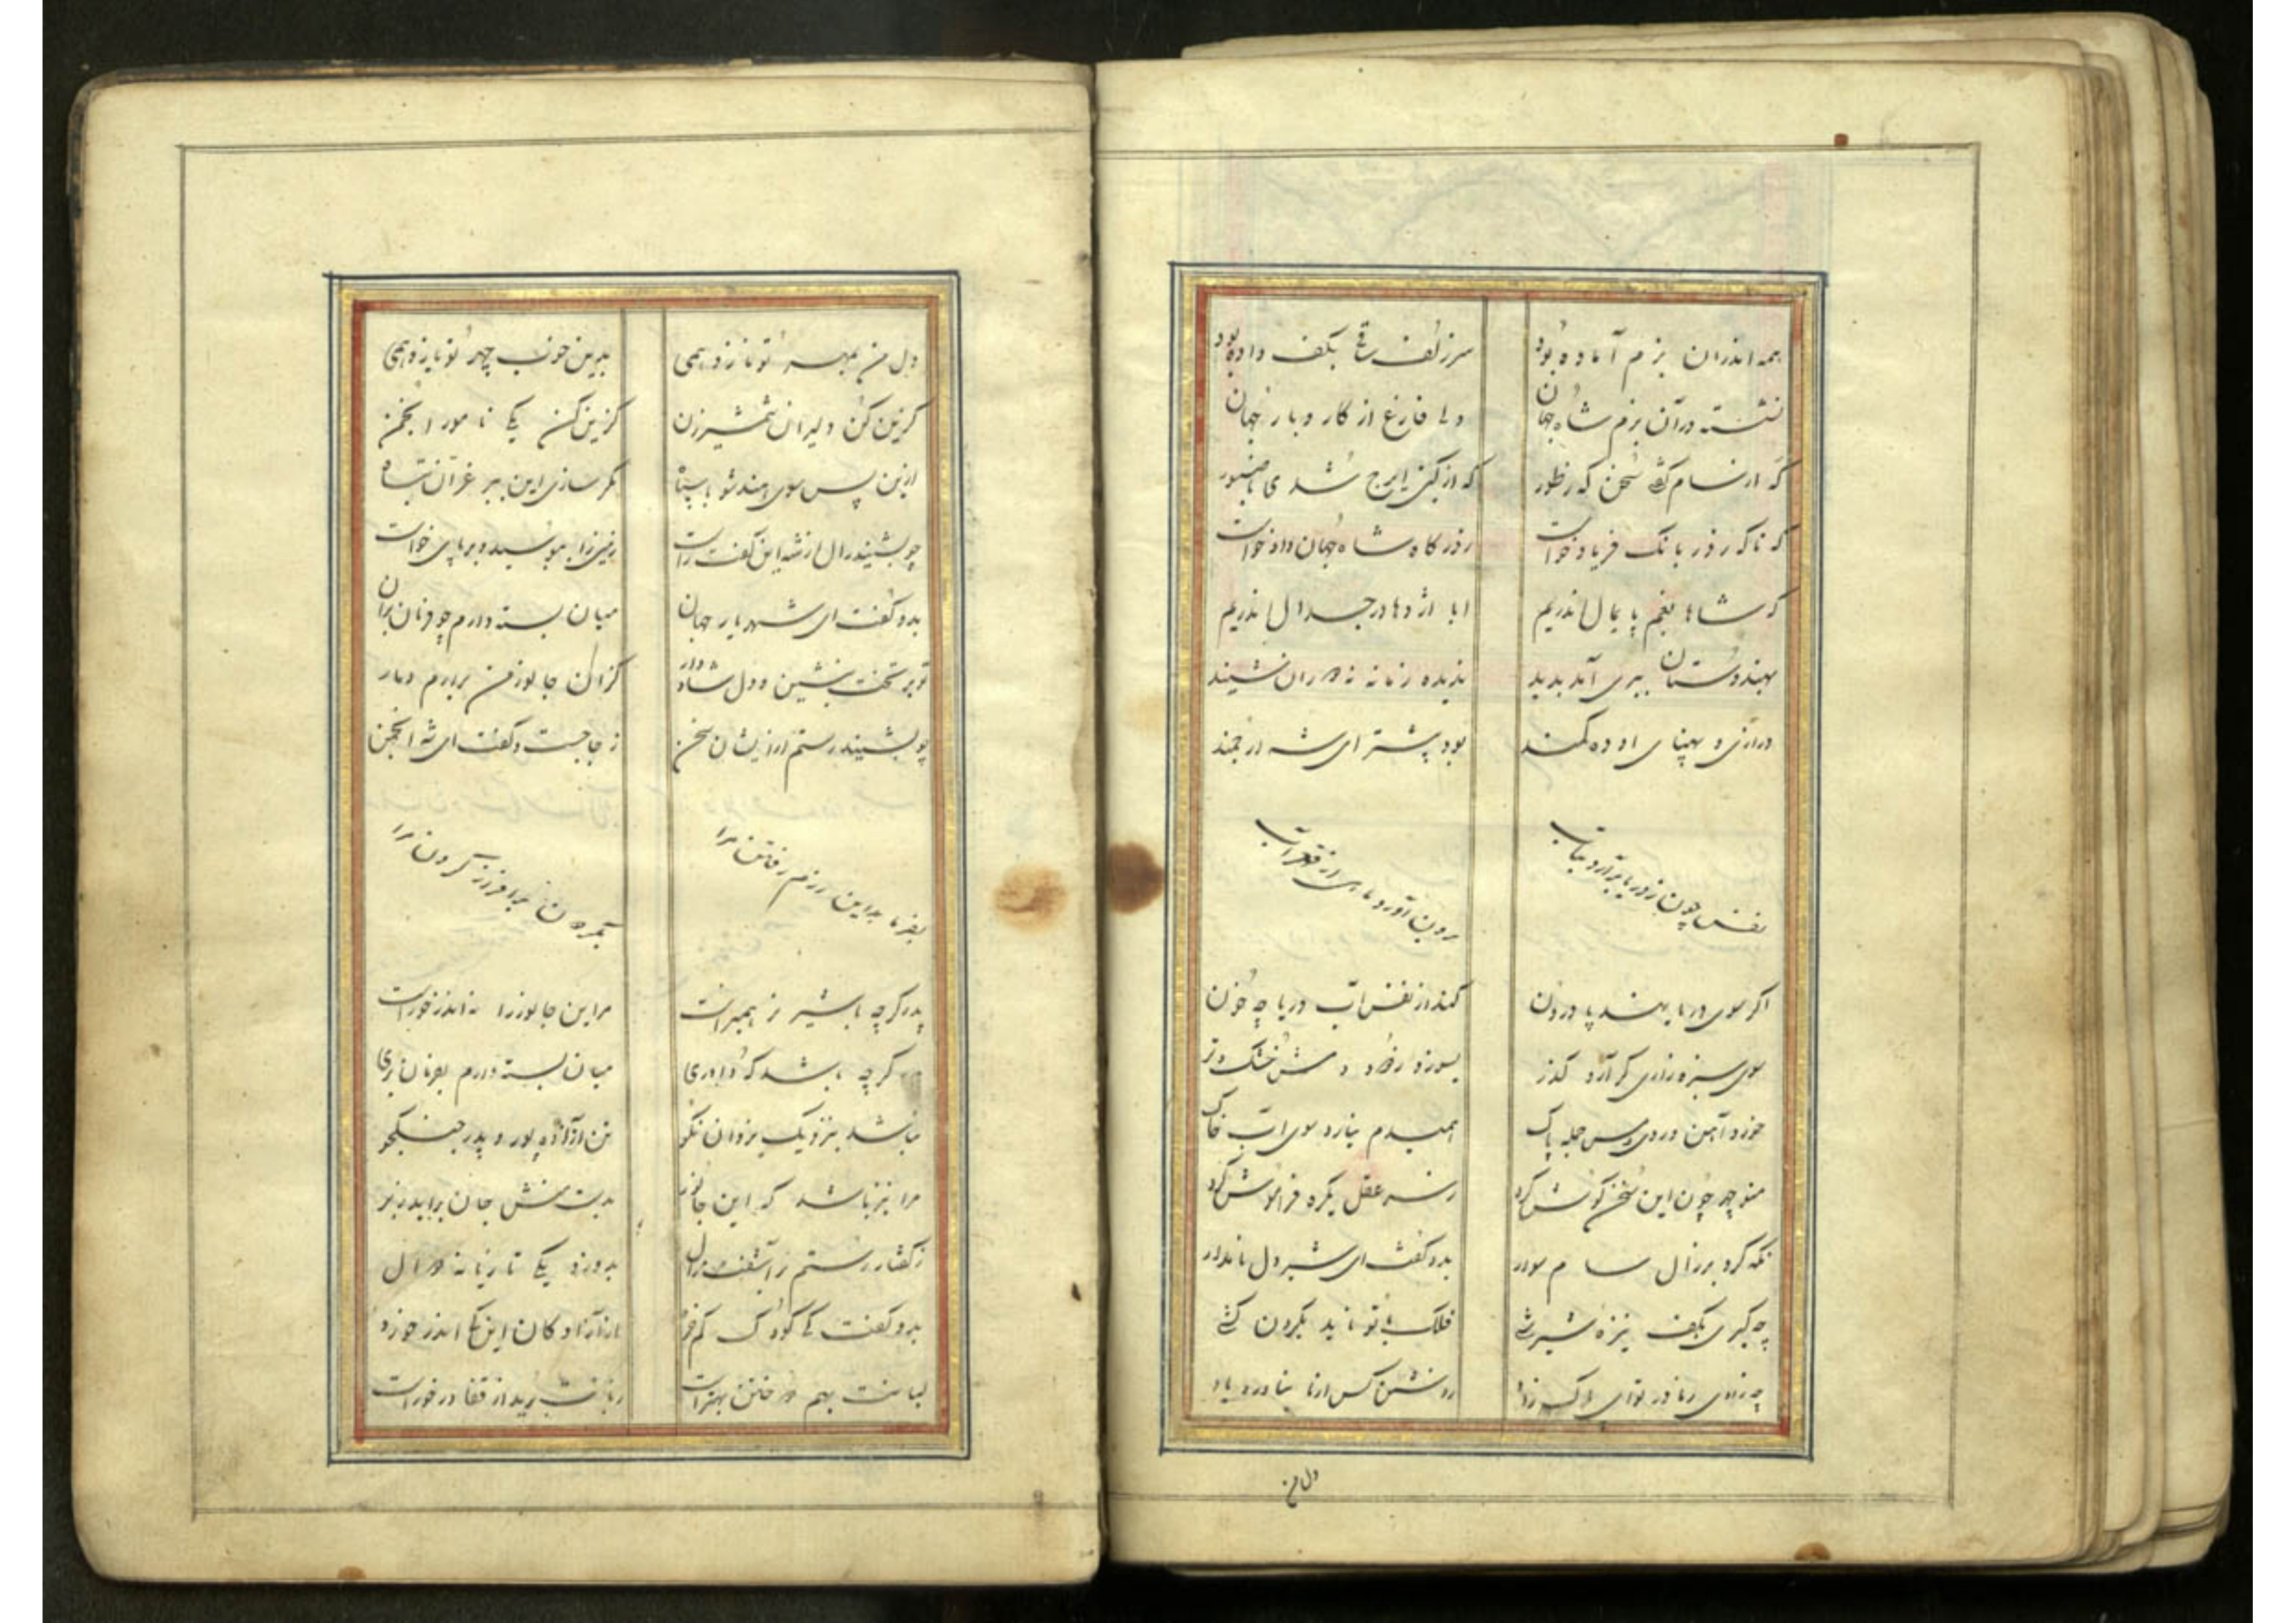 همه اندران بزم آماده بود سر زلف ساقی بکف داده بود
نشسته در آن بزم شاه جهان ولی فارغ از کار و بار جهان
که از سام گفتی سخن که ز طور که از کین ایرج شدی
که ناکه ز در بانک فریاد خواست ز درگاه شاه جهان داد خواست
که شاها بغم پایمال اندریم ابا اژدها در جدال اندریم
بهندوستان ببری آمد پدید ندیده زمانه نه دوران شنید
درازی و پهنای او ده کمند بود پیشتر ای شه ارجمند
نفس چون ز دریا برآرد بتاب برون آورد ماهی از قعر آب
اگر سوی دریا نهند پا درون کند از نفس آب دریا چه خون
سوی سبزه زاری کر آرد کذر بسوزد ز دود دمش خشک و تر
خورد آهن و روی و مس جمله پاک همیدم نیارد سوی آب خاک
منوچهر چون این سخن کوش کرد ز سر عقل یکره فراموش کرد
نکه کرد بر زال سام سوار بدو کفت ای شیر دل نامدار
چه کیری بکف نیزه شیر کشی فلک با تو ناید بکردن کشی
چه زادی ز مادر توای پاک زاد روشن کس از ما نیاورد یاد
دل من
دل من بمهر تو نازد همی بدین خوب چهر تو یازد همی
کزین کن دلیران شمشیرزن کزین کن یکی نامور انجمن
ازین پس سوی هند شو با سپاه مکر سازی این ببر غران تباه
چو بشنید زال از شه این کفت راست زمین را ببوسید و بر پای خواست
بدو کفت ای شهریار جهان میان بسته دارم چو فرمان بران
تو بر تخت بنشین و دل شاد دار کزان جانور من برارم دمار
چو بشنید رستم از ایشان سخن ز جا جست و کفت ای شه انجمن
بفرما بدین رزم رفتن مرا بکردون برافرز کردن مرا
پدر کرچه با شیر نر همبر است مر این جانور را نه اندر خور است
کرچه باشد که داوری میان بسته دارم بفرمان بری
نباشد بنزدیک یزدان نکو تن آزاده پور و پدر جنکجو
مرا نیز باشد که این جانور بدست منش جان براید ز بر
ز کفتار رستم برآشفت زال بدو زد یکی تازیانه دوال
بدو کفت کای کودک کم خرد از آزادکان این کی اندر خورد
لبانت بهم دوختن بهتر است زبانت برید از قفا در خور است